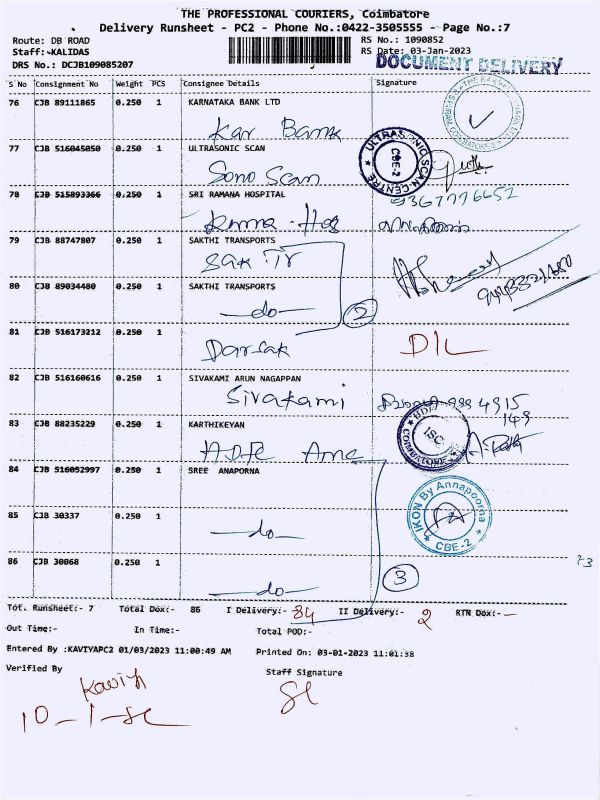 THE PROFESSIONAL COURIERS, Coimbatore
Delivery Runsheet - PC2 - Phone No.:0422-3505555 - Page No.:7
Route: DB ROAD
RS No.: 1090852
Staff: KALIDAS
RS Date: 03-Jan-2023
DRS No.: DCJB109085207
DOCUMENT DELIVERY
S No Consignment No Weight PCS Consignee Details Signature
76 CJB 89111865 0.250 1 KARNATAKA BANK LTD
Kar Bank
77 CJB 516045050 0.250 1 ULTRASONIC SCAN
ULTRASONIC SCAN CENTRE
CBE-2
Sono Scan
78 CJB 515893366 0.250 1 SRI RAMANA HOSPITAL
9367776652
Rama - Hos
79 CJB 88747807 0.250 1 SAKTHI TRANSPORTS
Sak Tr
80 CJB 89034480 0.250 1 SAKTHI TRANSPORTS
-do-
2
81 CJB 516173212 0.250 1
Darsak
D/L
82 CJB 516160616 0.250 1 SIVAKAMI ARUN NAGAPPAN
Sivakami
83 CJB 88235229 0.250 1 KARTHIKEYAN
ISC
COIMBATORE
84 CJB 516052997 0.250 1 SREE ANAPORNA
IKON By Annapoorna
CBE-2
85 CJB 30337 0.250 1
-do-
86 CJB 30068 0.250 1
-do-
3
Tot. Runsheet:- 7 Total Dox:- 86 I Delivery:- 84 II Delivery:- 2 RTN Dox:- -
Out Time:- In Time:- Total POD:-
Entered By :KAVIYAPC2 01/03/2023 11:00:49 AM Printed On: 03-01-2023 11:01:38
Verified By Staff Signature